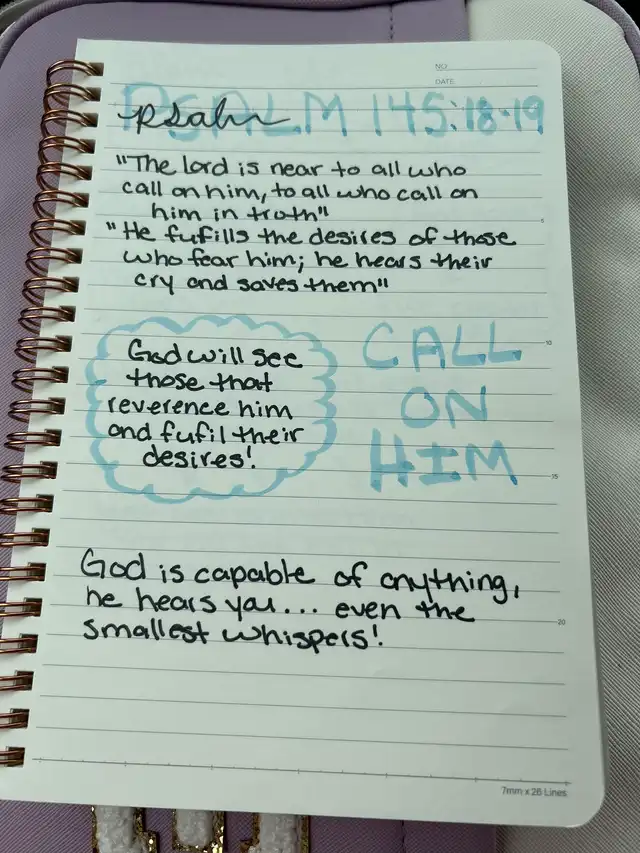 NO.
DATE
PSALM 145:18-19
Psalm
"The lord is near to all who
call on him, to all who call on
him in truth"
"He fufills the desires of those
who fear him; he hears their
cry and saves them"
God will see
those that
reverence him
and fufil their
desires!
CALL
ON
HIM
God is capable of anything,
he hears you... even the
smallest whispers!
5
10
15
20
7mm x 26 Lines